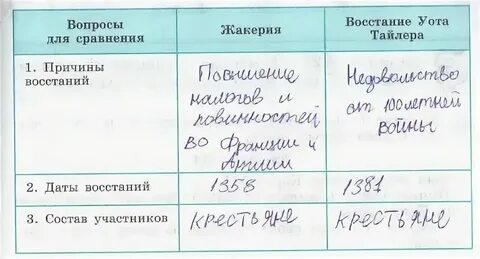 Вопросы для сравнения
Жакерия
Восстание Уота Тайлера
1. Причины восстаний
Повышение
налогов и
повинностей
во Франции и
Англии
Недовольство
от 100летней
войны
2. Даты восстаний
1358
1381
3. Состав участников
крестьяне
крестьяне